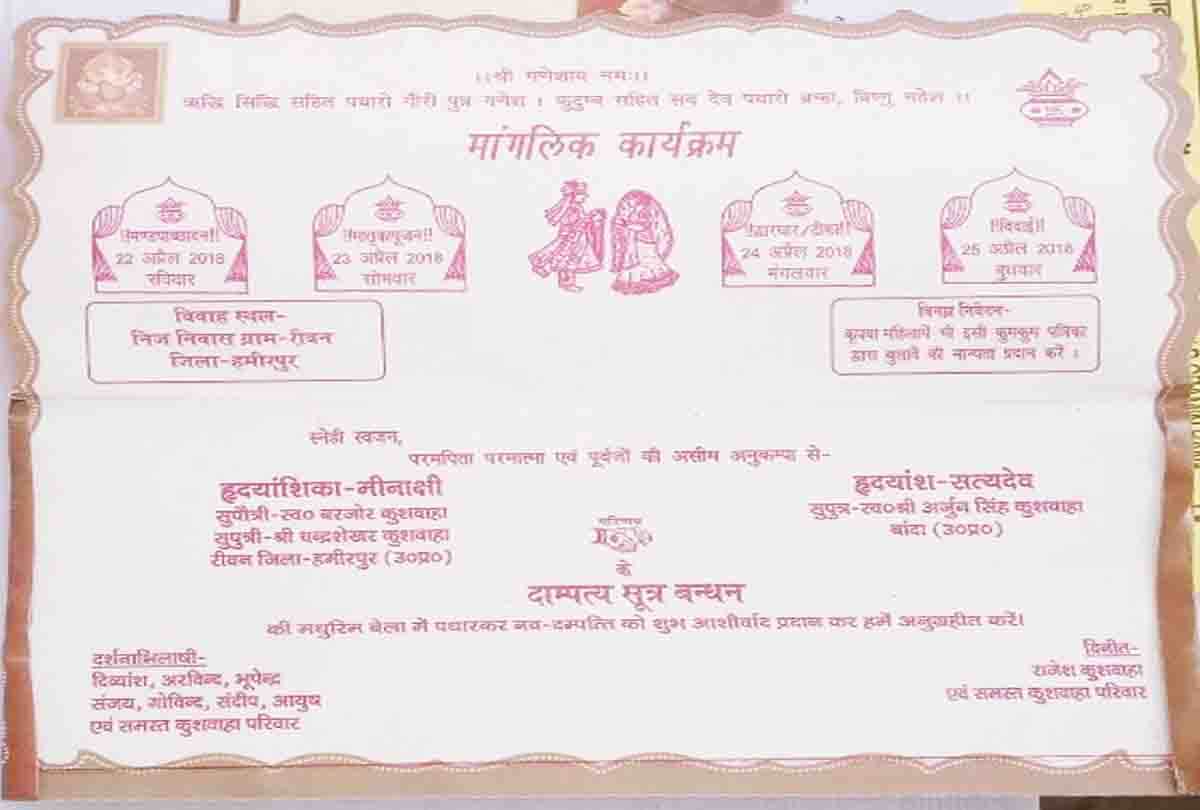 ।।श्री गणेशाय नमः।।
ऋद्धि सिद्धि सहित पधारो गौरी पुत्र गणेश । कुटुम्ब सहित सब देव पधारो ब्रह्मा, विष्णु महेश ।।
मांगलिक कार्यक्रम
!!मण्डपाच्छादन!!
22 अप्रैल 2018
रविवार
!!मातृकापूजन!!
23 अप्रैल 2018
सोमवार
!!द्वारचार/टीका!!
24 अप्रैल 2018
मंगलवार
!!विदाई!!
25 अप्रैल 2018
बुधवार
विवाह स्थल-
निज निवास ग्राम-रीवन
जिला-हमीरपुर
विनम्र निवेदन-
कृपया महिलायें भी इसी कुमकुम पत्रिका
द्वारा बुलावे की मान्यता प्रदान करें ।
स्नेही स्वजन,
परमपिता परमात्मा एवं पूर्वजों की असीम अनुकम्पा से-
हृदयांशिका-मीनाक्षी
सुपौत्री-स्व० बरजोर कुशवाहा
सुपुत्री-श्री चन्द्रशेखर कुशवाहा
रीवन जिला-हमीरपुर (उ०प्र०)
परिणय
हृदयांश-सत्यदेव
सुपुत्र-स्व०श्री अर्जुन सिंह कुशवाहा
बांदा (उ०प्र०)
के
दाम्पत्य सूत्र बन्धन
की मधुरिम बेला में पधारकर नव-दम्पत्ति को शुभ आशीर्वाद प्रदान कर हमें अनुग्रहीत करें।
दर्शनाभिलाषी-
दिव्यांश, अरविन्द, भूपेन्द्र
संजय, गोविन्द, संदीप, आयुष
एवं समस्त कुशवाहा परिवार
विनीत-
राजेश कुशवाहा
एवं समस्त कुशवाहा परिवार